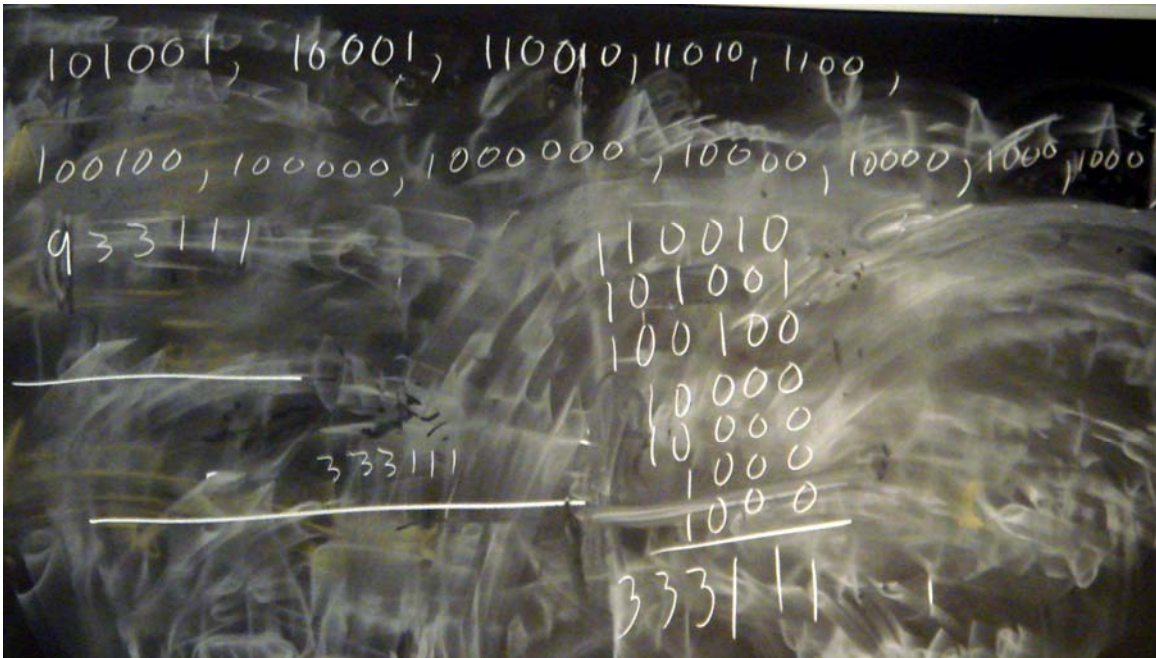 101001, 10001, 110010, 11010, 1100,
100100, 100000, 1000000, 10000, 10000, 1000, 1000
933111
110010
101001
100100
10000
10000
1000
1000
333111
333111 1